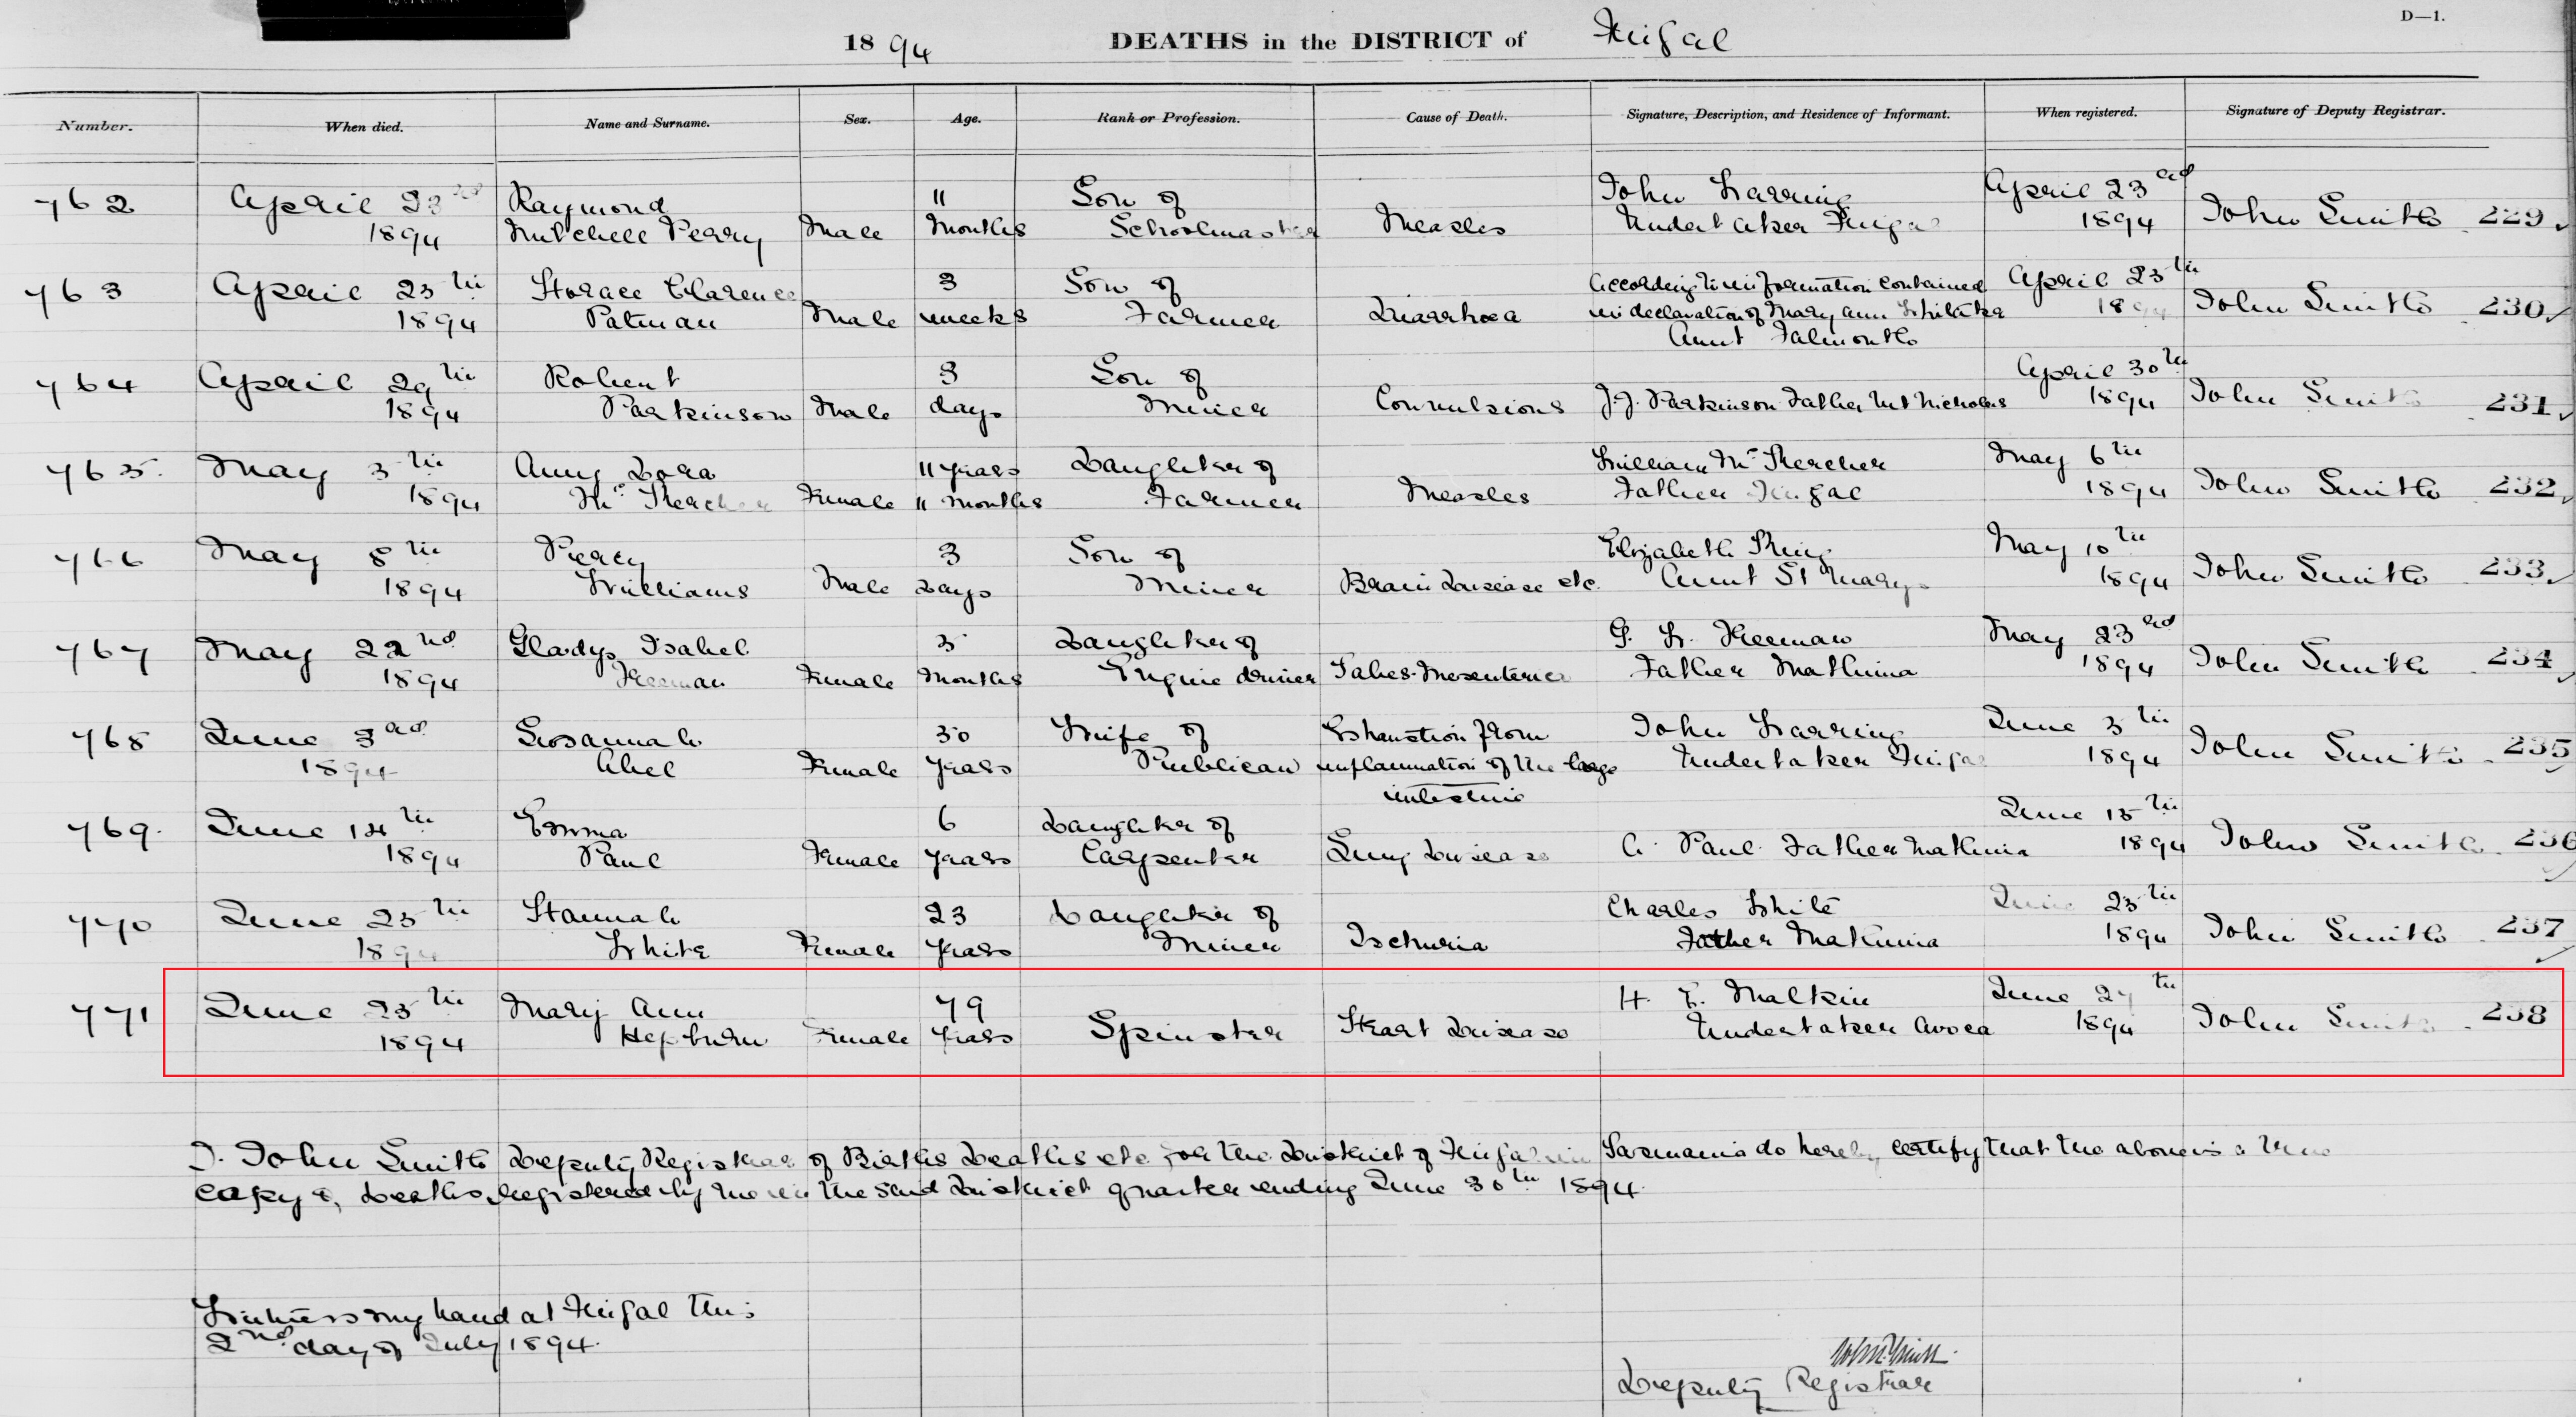 D—1.
1894 DEATHS in the DISTRICT of Fingal
Number. When died. Name and Surname. Sex. Age. Rank or Profession. Cause of Death. Signature, Description, and Residence of Informant. When registered. Signature of Deputy Registrar.
April 23rd Raymond 11 Son of John April 23rd
762 1894 Mitchell Peary Male Months Schoolmaster Measles Undertaker Fingal 1894 John Smith 229
763 April 25th Horace Clarence 3 Son of According to information contained April 25th
1894 Patman Male weeks Farmer Diarrhoea in declaration of Mary Ann Whitaker 1894 John Smith 230
Aunt Falmouth
764 April 29th Robert 3 Son of April 30th
1894 Parkinson Male days Miner Convulsions J. J. Parkinson Father Mt Nicholas 1894 John Smith 231
765 May 5th Amy Dora 11 years Daughter of William McKercher May 6th
1894 McKercher Female 11 Months Farmer Measles Father Fingal 1894 John Smith 232
766 May 8th Percy 3 Son of Elizabeth King May 10th
1894 Williams Male Days Miner Brain Disease etc. Aunt St Marys 1894 John Smith 233
767 May 22nd Gladys Isabel 5 Daughter of G. W. May 23rd
1894 Female Months Engine driver Tabes Mesenterica Father Mathinna 1894 John Smith 234
768 June 3rd Susannah 30 Wife of Exhaustion from John June 5th
1894 Abel Female Years Publican inflammation of the large Undertaker Fingal 1894 John Smith 235
intestine
769 June 14th Emma 6 Daughter of June 15th
1894 Paul Female Years Carpenter Lung Disease A. Paul Father Mathinna 1894 John Smith 236
770 June 25th Hannah 23 Daughter of Charles White June 25th
1894 White Female Years Miner Ischuria Father Mathinna 1894 John Smith 237
771 June 25th Mary Ann 79 H. F. Malkin June 27th
1894 Hepburn Female Years Spinster Heart Disease Undertaker Avoca 1894 John Smith 238
I. John Smith Deputy Registrar of Births Deaths etc for the District of Fingal in Tasmania do hereby certify that the above is a true
copy of Deaths registered by me in the said District quarter ending June 30th 1894.
Witness my hand at Fingal this
2nd day of July 1894.
John Smith
Deputy Registrar